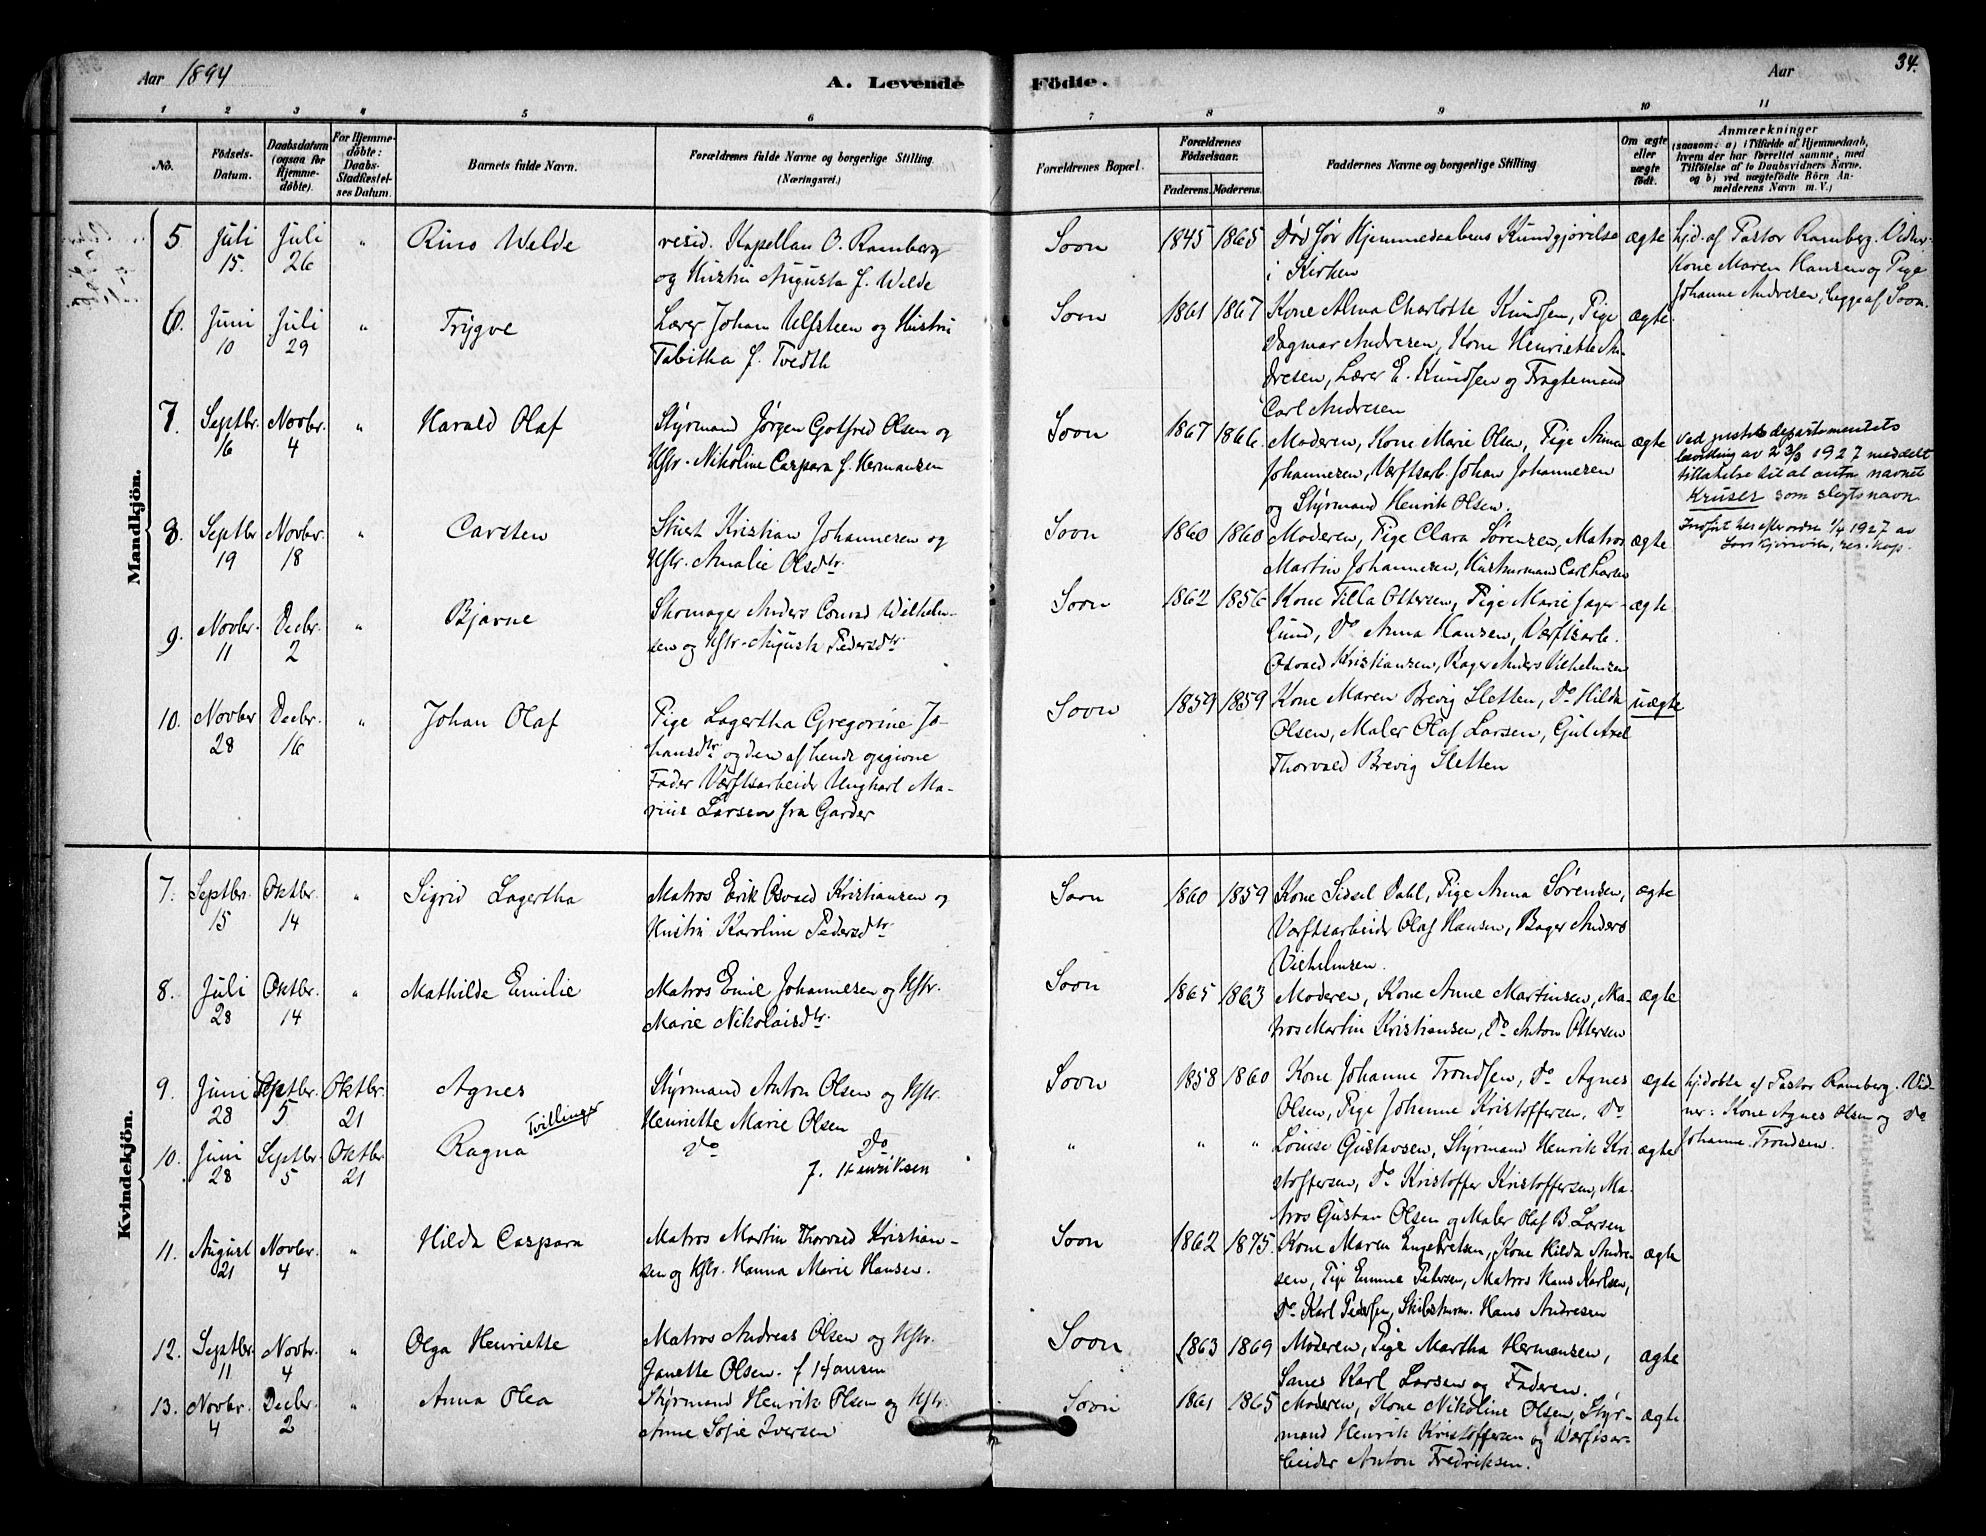 Aar 1894
A. Levende Födte.
Aar
34.
1 2 3 4 5 6 7 8 9 10 11
No.
Födsels-Datum.
Daabsdatum (ogsaa for Hjemmedöbte).
For Hjemmedöbte: Daabs-Stadfæstelses Datum.
Barnets fulde Navn.
Forældrenes fulde Navne og borgerlige Stilling. (Næringsvei.)
Forældrenes Bopæl.
Forældrenes Födselsaar.
Faderens. Moderens.
Faddernes Navne og borgerlige Stilling
Om ægte eller uægte födt.
Anmærkninger
(saasom: a) i Tilfælde af Hjemmedaab, hvem der har forrettet samme, med Tilföielse af to Daabsvidners Navne, og b) ved uægtefödte Börn Anmelderens Navn m. V.)
Mandkjön.
5 Juli 15. Juli 26 " Rino Welde
resid. Kapellan O. Ramberg
og Hustru Augusta f. Welde
Soon 1845 1865
Død før Hjemmedaabens Kundgjørelse
i Kirken
ægte
hjd. af Pastor Ramberg. Vidner:
Kone Maren Hansen og Pige
Johanne Andresen, begge af Soon.
6. Juni 10 Juli 29 " Trygve
Lærer Johan Ulfsteen og Hustru
Tabitha f. Tvedth
Soon 1861 1867
Kone Alma Charlotte Knudsen, Pige
Dagmar Andresen, Kone Henriette An-
dresen, Lærer E. Knudsen og Fragtemand
Carl Andresen
ægte
7. Septbr. 16 Novbr. 4 " Harald Olaf
Styrmand Jørgen Gotfred Olsen og
Hstr. Nikoline Caspara f. Hermansen
Soon 1867 1866.
Moderen, Kone Marie Olsen, Pige
Johannesen, Værftsarb. Johan Johannesen
og Styrmand Henrik Olsen.
ægte
Ved justitsdepartementets
bevilling av 23/3 1927 meddelt
tillatelse til at anta navnet
Kruser som slegtsnavn
Indført her efter ordre 1/4 1927 av
8. Septbr 19 Novbr. 18 " Carsten
Stuert Kristian Johannesen og
Hstr. Amalie Olsdtr.
Soon 1860 1860
Moderen, Pige Clara Sørensen, Matros
Martin Johannesen, Carl Larsen
ægte
9. Novbr. 11 Decbr. 2 " Bjarne
Skomager Anders Conrad Wilhelm-
sen og Hstr. Augusta Pedersdtr
Soon 1862 1856
Kone Tilla Ottersen, Pige Marie Jager-
lund, Do Anna Hansen, Værftsarb.
Osvald Kristiansen, Bager Anders Vilhelmsen
ægte
10. Novbr 28 Decbr. 16 " Johan Olaf
Pige Lagertha Gregorine Jo-
hansdtr og den af hende opgivne
Fader Værftsarbeider Ungkarl Ma-
rius Larsen fra Garder
Soon 1859 1859
Kone Maren Brevig Sletten, Do Hilda
Olsen, Maler Olaf Larsen, Gut Axel
Thorvald Brevig Sletten
uægte
Kvindekjön.
7. Septbr. 15 Oktbr. 14 " Sigrid Lagertha
Matros Erik Osvald Kristiansen og
Hustru Karoline Pedersdtr
Soon 1860 1859
Kone Sidsel Dahl, Pige Anna Sørensen,
Værftsarbeider Olaf Hansen, Bager Anders
Vilhelmsen.
ægte
8. Juli 28 Oktbr. 14 " Mathilde Emilie
Matros Emil Johannesen og Hstr.
Marie Nikolaisdtr.
Soon 1865 1863
Moderen, Kone Anne Martinsen, Ma-
tros Martin Kristiansen, Do Anton Ottersen
ægte
9. Juni 28 Septbr. 5 Oktbr. 21 Agnes
Tvillinger
Styrmand Anton Olsen og Hstr.
Henriette Marie Olsen
Soon 1858 1860
Kone Johanne Trondsen, Do Agnes
Olsen, Pige Johanne Kristoffersen, Do
ægte
hjdøbte af Pastor Ramberg. Vid-
ner: Kone Agnes Olsen og Do
Johanne Trondsen.
10. Juni 28 Septbr. 5 Oktbr. 21 Ragna
Do Do
f. Henriksen
" " "
Louise Gustavsen, Styrmand Henrik Kri-
stoffersen, Do Kristoffer Kristoffersen, Ma-
tros Gustav Olsen og Maler Olaf B. Larsen
ægte
11. August 21 Novbr. 4 " Hilda Caspara
Matros Martin Thorvald Kristian-
sen og Hstr. Hanna Marie Hansen.
Soon 1862 1875.
Kone Maren Engebretsen, Kone Hilda Andre-
sen, Pige Emma Petersen, Matros Hans Karlsen,
Do Karl Pedersen, Skibstørm. Hans Andresen
ægte
12. Septbr. 11 Novbr. 4 " Olga Henriette
Matros Andreas Olsen og Hstr.
Janette Olsen. f Hansen
Soon 1863 1869
Moderen, Pige Martha Hermansen,
Karl Larsen og Faderen.
ægte
13. Novbr. 4 Decbr. 2 " Anna Olea
Styrmand Henrik Olsen og Hstr.
Anne Sofie Iversen
Soon 1861 1865
Moderen, Kone Nikoline Olsen, Styr-
mand Henrik Kristoffersen og Værftsar-
beider Anton Fredriksen.
ægte